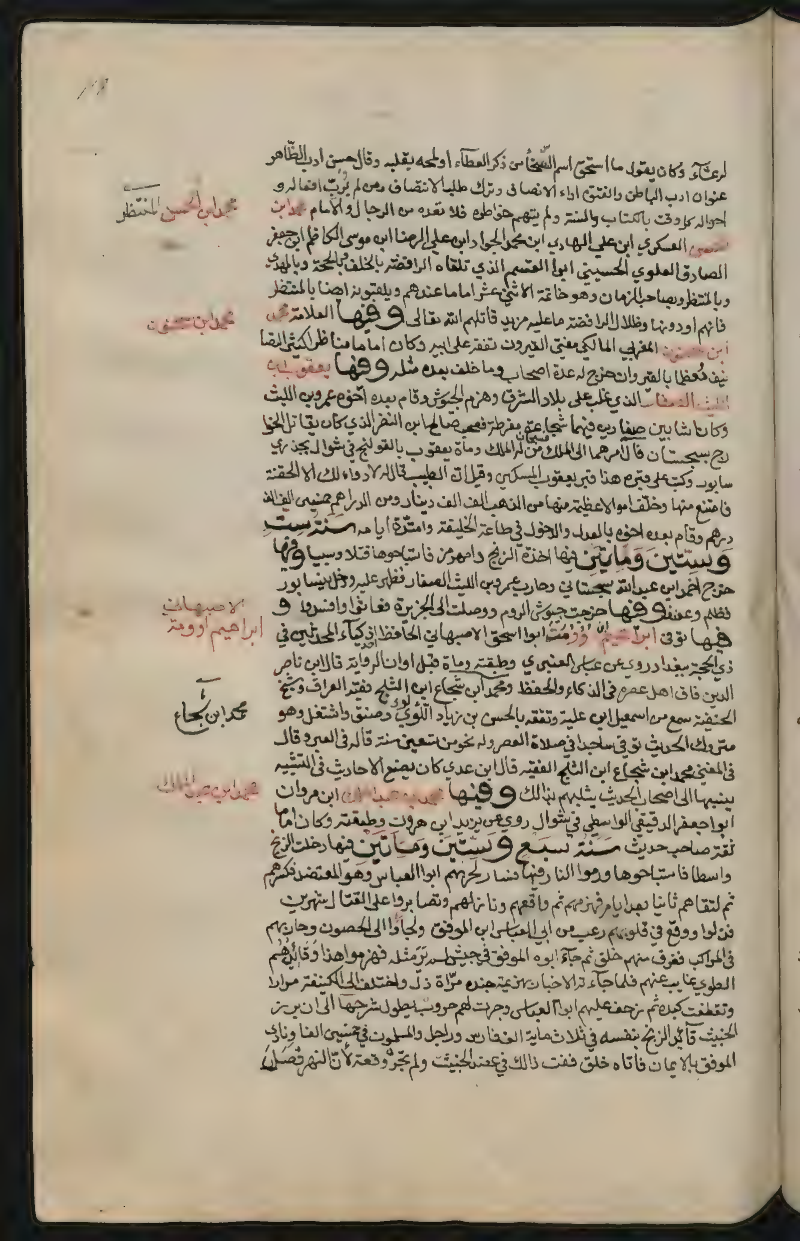 لرعشاء وكان يقول ما استحق اسم السخا من ذكر العطاء او لمحه بقلبه وقال حسن ادب الظاهر
عنوان ادب الباطن والفتوة اداء الانصاف وترك طلب الانتصاف ومن لم يزن افعاله و
احواله كل وقت بالكتاب والسنة ولم يتهم خواطره فلا تعده من الرجال والامام محمد ابن
محمد ابن الحسن المنتظر
العسكري ابن علي الهادي ابن محمد الجواد ابن علي الرضا ابن موسى الكاظم ابن جعفر
الصادق العلوي الحسيني ابوا القسم الذي تلقاه الرافضة بالخلف وبالحجة وبالمهدي
وبالمنتظر وبصاحب الزمان وهو خاتمة الاثني عشر اماما عندهم ويلقبونه ايضا بالمنتظر
فانهم وضلال الرافضة ما عليه مزيد قاتلهم الله تعالى وفيها العلامة محمد
محمد ابن سحنون
ابن سحنون المغربي المالكي مفتي القيروان تفقه على ابيه وكان اماما مناظرا كثير التصا
نيف معظما بالقيروان خرج له عدة اصحاب وما خلف بعده مثله وفيها يعقوب ابن
الليث الصفار الذي غلب على بلاد الشرق وهزم الجيوش وقام بعده اخوه عمرو ابن الليث
وكانا شابين صفارين فيهما شجاعة مفرطة فصحبا صالح ابن النضر الذي كان يقاتل الخوا
رج بسجستان فآل امرهما الى الملك فسبحان من له الملك ومات يعقوب بالقولنج في شوال بجندي
سابور وكتب على قبره هذا قبر يعقوب المسكين وقيل ان الطبيب قال له لا دواء لك الا الحقنة
فامتنع منها وخلف اموالا عظيمة منها من الذهب الف الف دينار ومن الدراهم خمسين الف الف
درهم وقام بعده اخوه بالعدل والدخول في طاعة الخليفة وامتدت ايامه سنة ست
وستين وماتين فيها اخذت الزنج رامهرمز فاستباحوها قتلا وسبيا وفيها
خرج احمد ابن عبد الله سجستاني وحارب عمرو بن الليث الصفار فظهر عليه ودخل نيسابور
فظلم وعسف وفيها خرجت جيوش الروم ووصلت الى الجزيرة فعاثوا وافسدوا و
الاصبهاني
ابراهيم اوومة
فيها توفى ابراهيم ابوا اسحق الاصبهاني الحافظ احد اذكياء المحدثين في
ذي الحجة ببغداد روى عن عباس العنبري وطبقته ومات قبل اوان الرواية قال ابن ناصر
الدين فاق اهل عصره في الذكاء والحفظ ومحمد ابن شجاع ابن الثلجي فقيه العراق وشيخ
محمد ابن شجاع
الحنفية سمع من اسمعيل ابن علية وتفقه بالحسن بن زياد اللؤلوي وصنف واشتغل وهو
متروك الحديث توفى ساجدا في صلاة العصر وله نحو من تسعين سنة قاله في العبر وقال
في المغني محمد ابن شجاع ابن الثلجي الفقيه قال ابن عدي كان يضع الاحاديث في التشبيه
ينسبها الى اصحاب الحديث يثلبهم بذالك وفيها محمد ابن عبد الملك ابن مروان
محمد ابن عبد الملك
ابوا جعفر الدقيقي الواسطي في شوال روى عن يزيد ابن هرون وطبقته وكان اماما
ثقة صاحب حديث سنة سبع وستين وماتين فيها دخلت الزنج
واسطا فاستباحوها ورموا النار فيها فسار لحربهم ابوا العباس وهو المعتضد فكسرهم
ثم لتقاهم ثانيا بعد ايام فهزمهم ثم واقعهم ونازلهم وتصابروا على القتال شهرين
فذلوا ووقع في قلوبهم رعب من ابي العباس ابن الموفق ولجاوا الى الحصون وحاربهم
في المراكب فغرق منهم خلق ثم جاء ابوه الموفق في جيش لم ير مثله فهزموا هذا وقائدهم
العلوي غايب عنهم فلما جاءته الاخبار بهزيمة جنده مرات ذل واختلف الى الكنيف مرارا
وتقطعت كبده ثم زحف عليهم ابوا العباس وجرت لهم حروب يطول شرحها الى ان برز
الخبيث قائد الزنج بنفسه في ثلاث ماية الف فارس وراجل والمسلمون في خمسين الفا ونادى
الموفق بالايمان فاتاه خلق ففت ذالك في عضد الخبيث ولم تجر وقعة لان النهر فصل